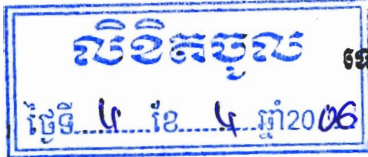 លិខិតចូល
ថ្ងៃទី....៤....ខែ....៤....ឆ្នាំ2006